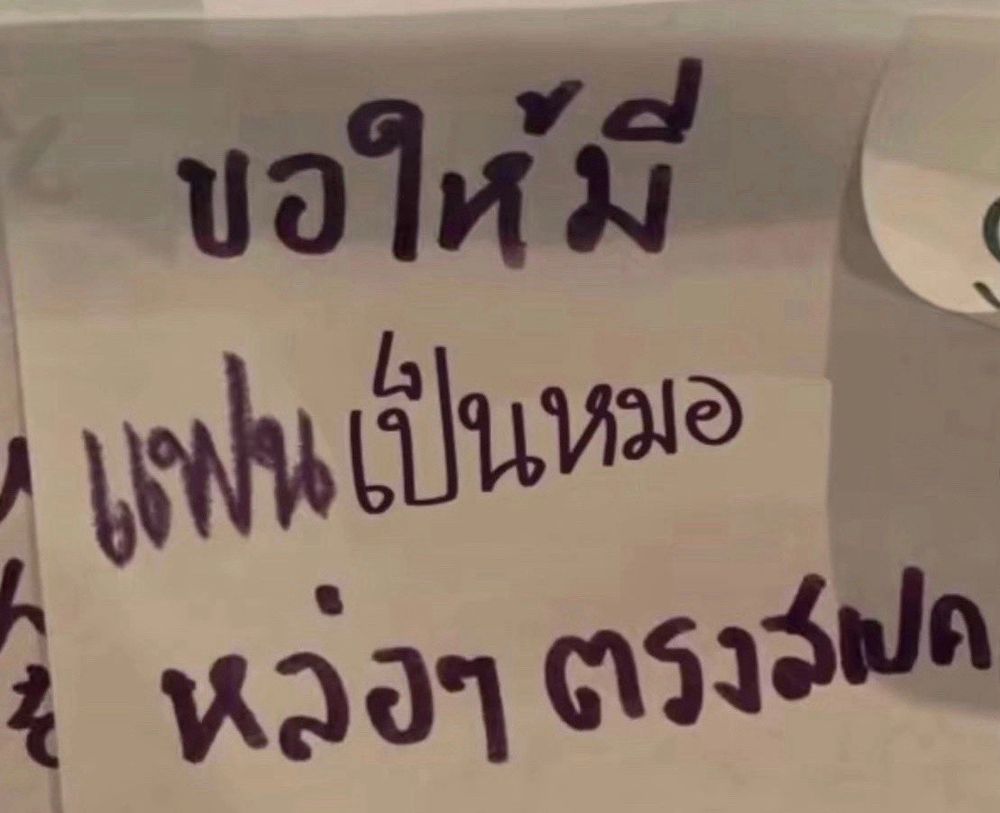 ขอให้มี
แฟนเป็นหมอ
หล่อๆ ตรงสเปค